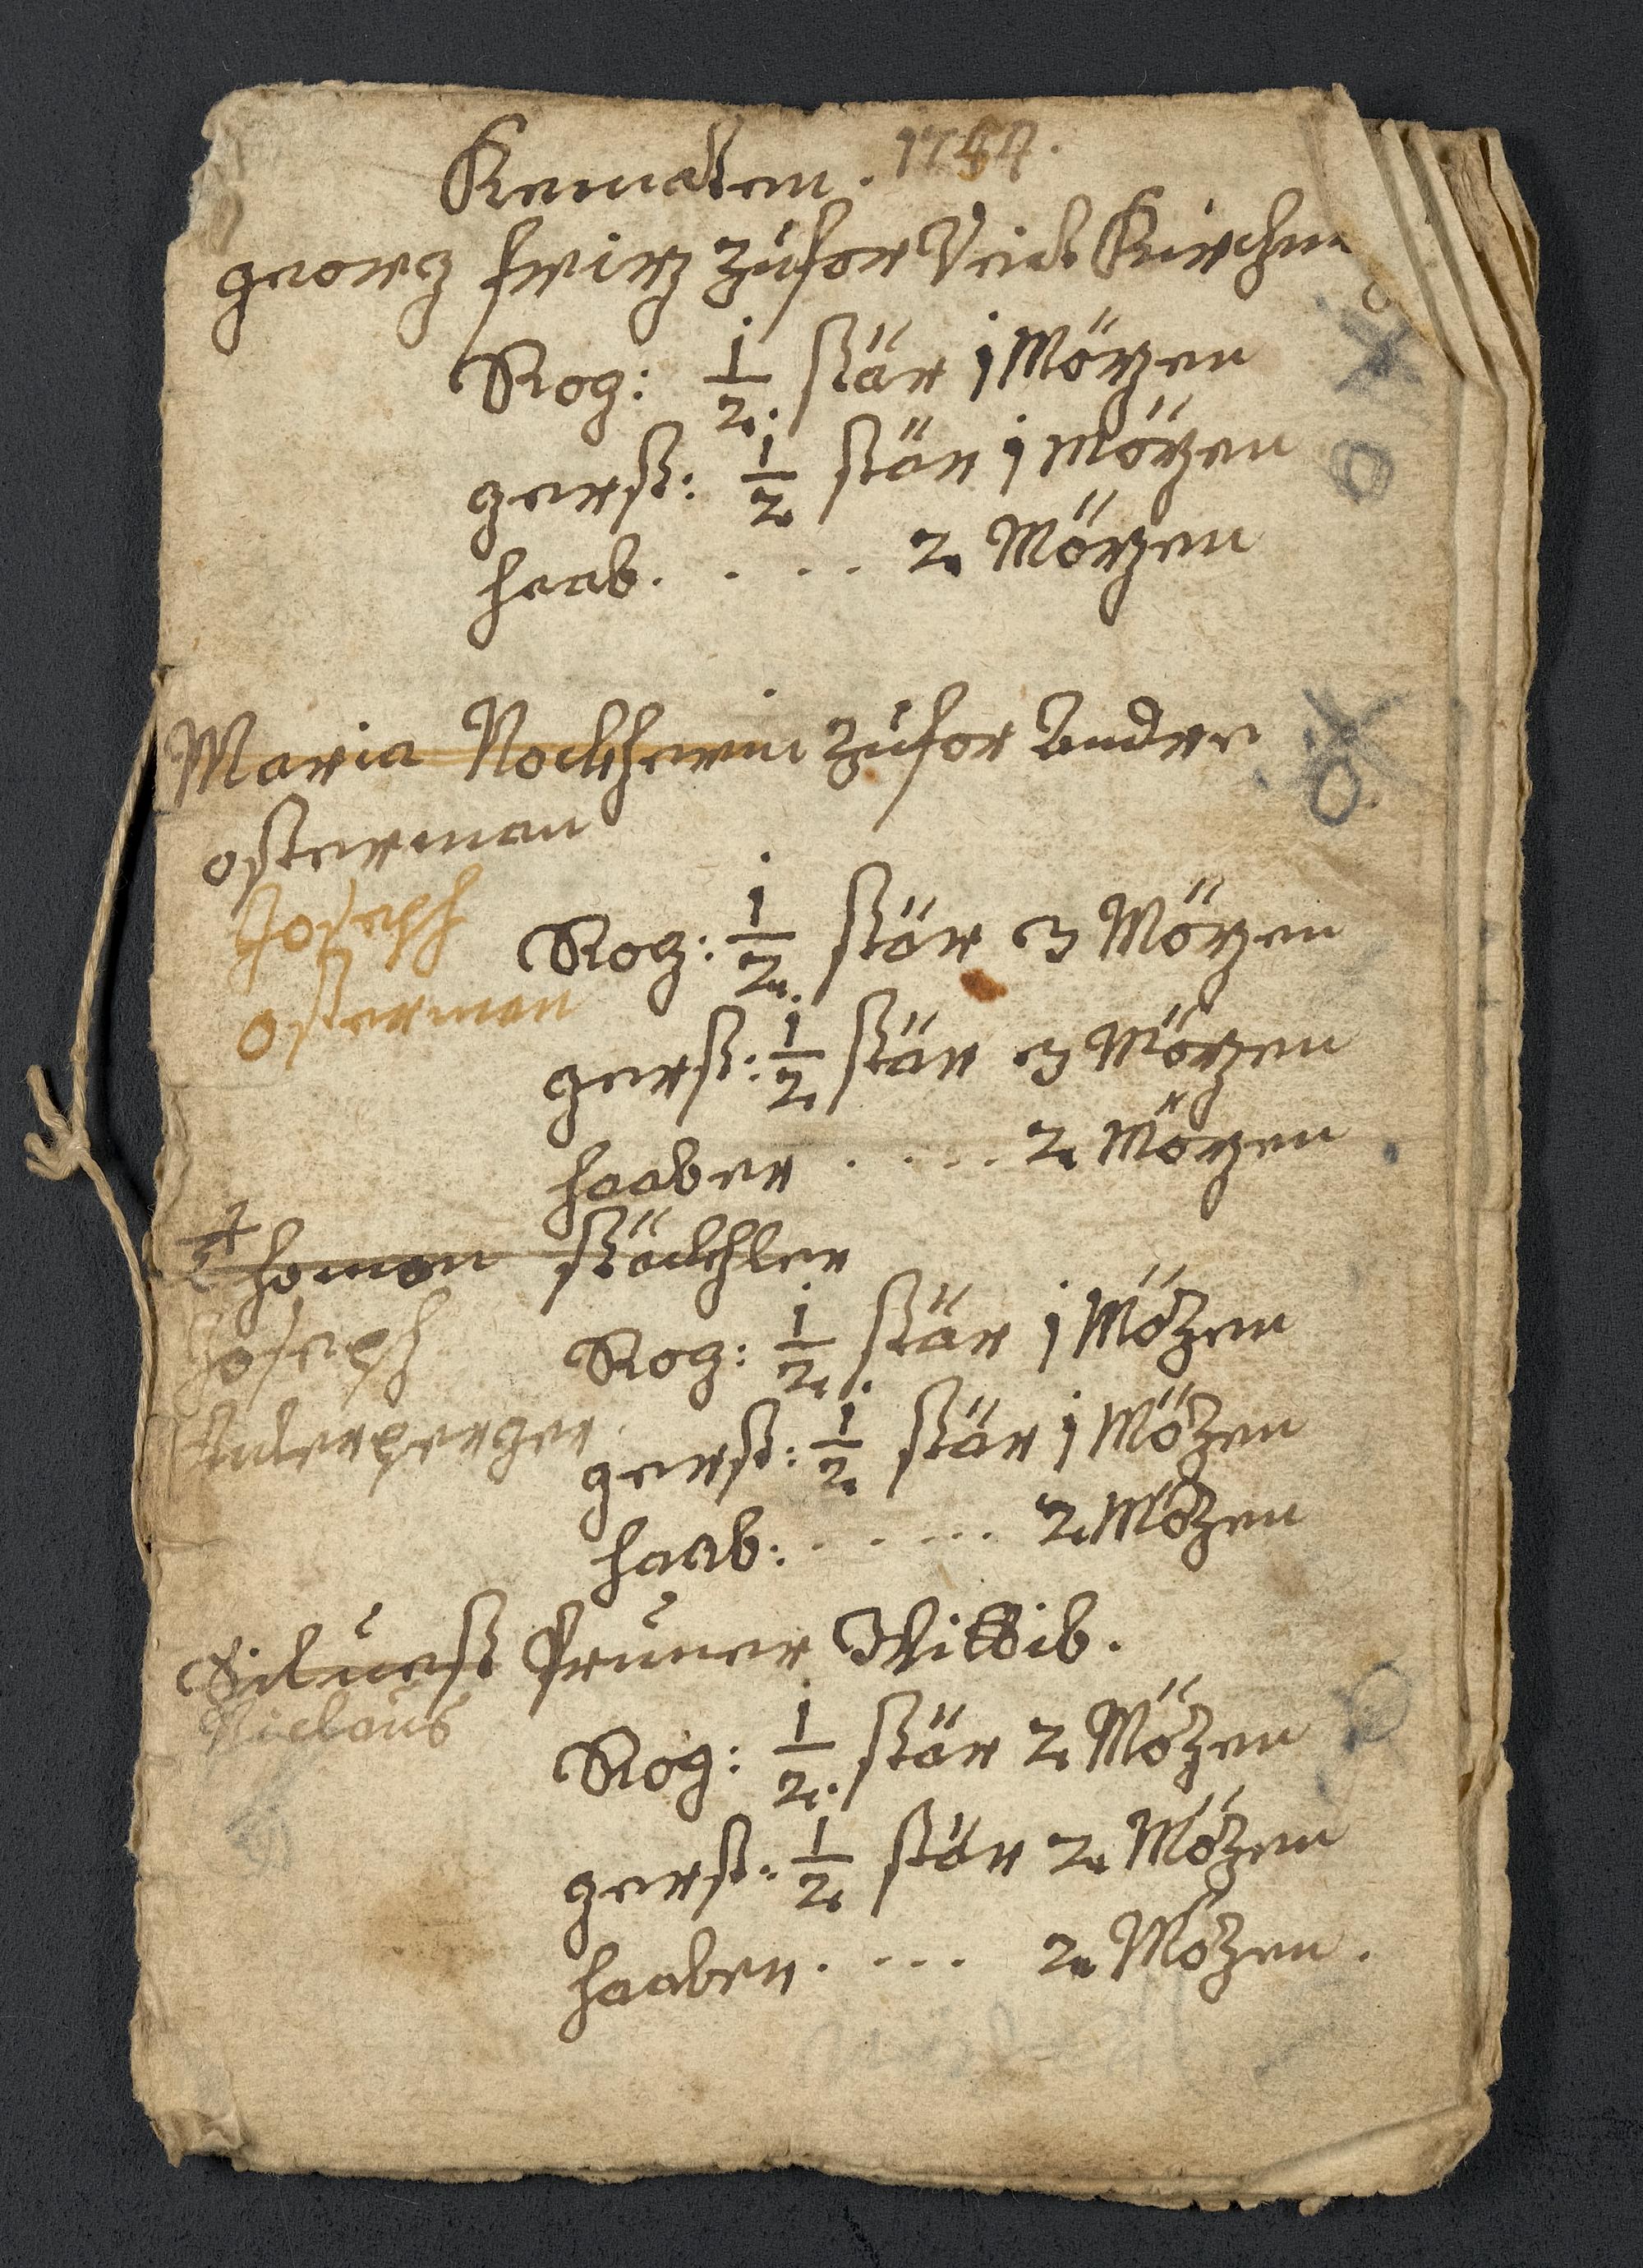 Kematen. 1754.
georg fririz zufor Veit Kirchm
Rog: 1/2. stär j Mörzen
gerst: 1/2 stär j Mörzen
haab. . . . . 2 Mörzen
Maria Nockherin zufor Andree
osterman
Joseph
Osterman
Rog: 1/2. stär 3 Mörzen
gerst: 1/2 stär 3 Mörzen
haaber . . . . . 2 Mörzen
Thoman stöckhler
Joseph
Rog: 1/2. stär j Mözen
gerst: 1/2 stär j Mözen
haab: . . . . . 2 Mözen
Siluest Pruner Wittib.
Niclaus
Rog: 1/2. stär 2 Mözen
gerst: 1/2 stär 2 Mözen
haaber. . . . 2 Mözen.